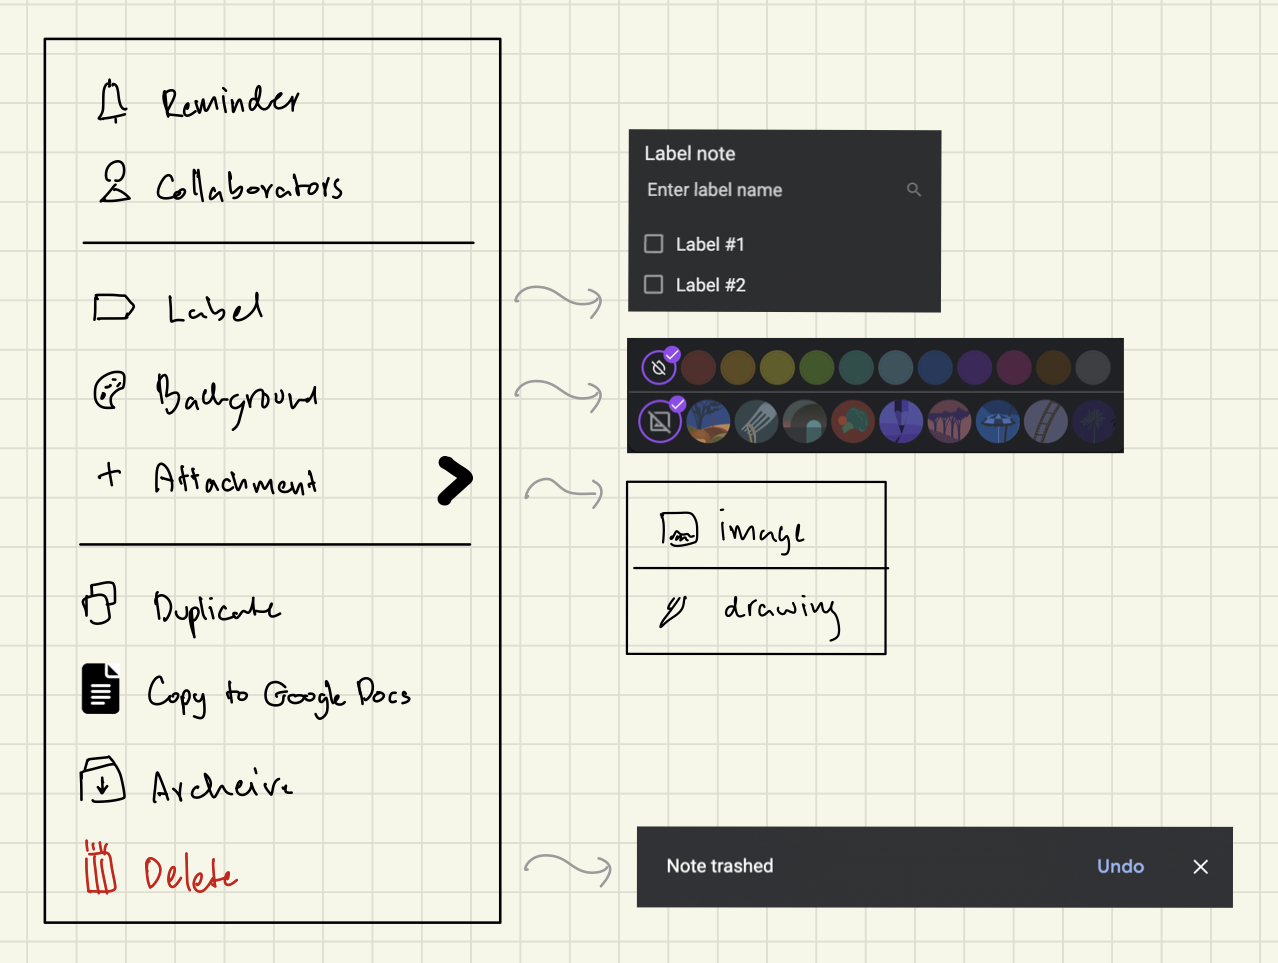 Reminder
Collaborators
Label
Background
+ Attachment
Duplicate
Copy to Google Docs
Archeive
Delete
Label note
Enter label name
Label #1
Label #2
image
drawing
Note trashed Undo